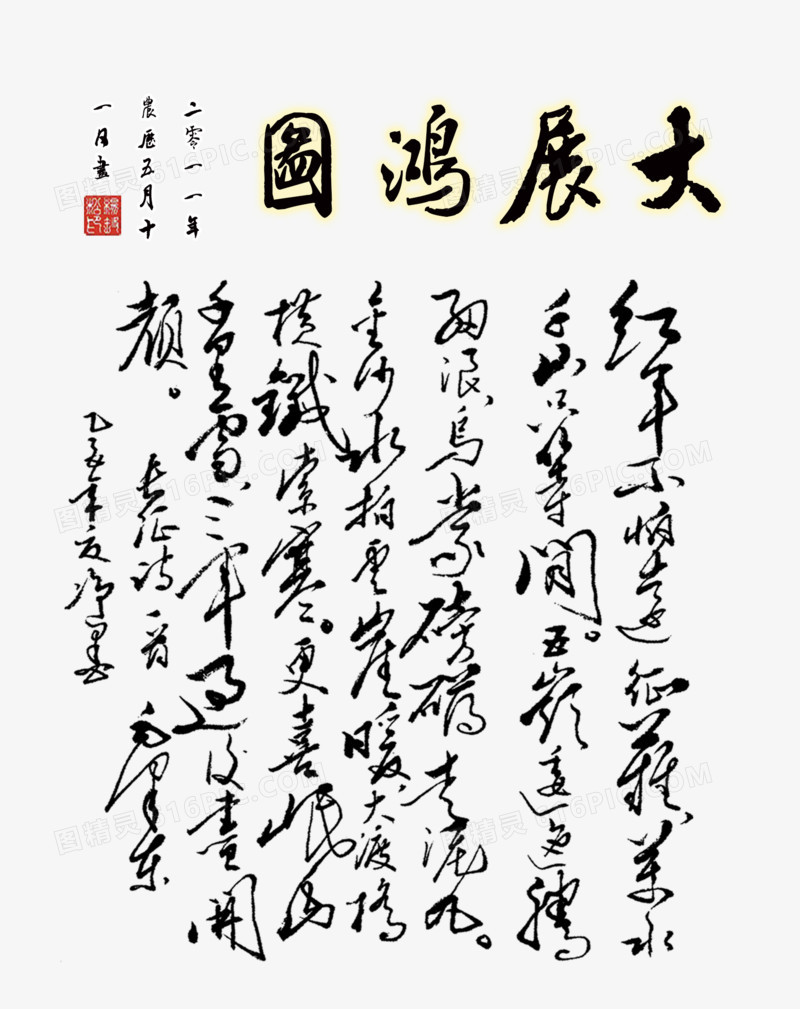 大展鴻圖
二零一一年
農歷五月十
一日畫
红軍不怕遠征難萬水
千山只等閒。五嶺逶迤腾
细浪烏蒙磅礴走泥丸。
金沙水拍雲崖暖大渡橋
横鐵索寒。更喜岷山
千里雪三軍过後盡開
颜。
长征诗一首 毛澤东
乙亥年夏
图精灵 616PIC.COM